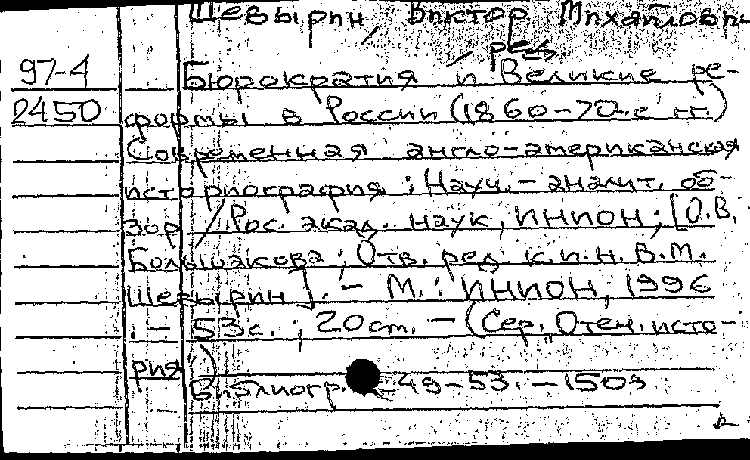 Шевырин, Виктор Михайлович
, ред.
97-4 Бюрократия и Великие ре-
2450 формы в России (1860-70-е гг.)
Современная англо-американская
историография : Науч.-аналит. об-
зор / Рос. акад. наук, ИНИОН ; [О.В.
Большакова ; Отв. ред. к.и.н. В.М.
Шевырин]. - М. : ИНИОН, 1996
. - 53с. ; 20 cm. - (Сер. "Отеч. исто-
рия")
Библиогр. 49-53. - 150э